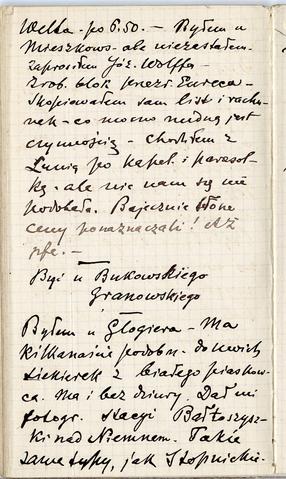 Wełka - po 6.50. — Byłem u
Mieszkows. ale niezastałem.
Zaprosiłem Józ. Wolffa -
Zrob. blok przez Eureca -
Skopiowałem sam list i rachu-
nek - co mocno nudną jest
czynnością - chodziłem z
Lunią po kapel. i parasol-
kę - ale nic nam się nie
podobało. Bajecznie słone
ceny ponaznaczali! Aż
pfe. —
Być u Bukowskiego
Granowskiego
Byłem u Głogiera - Ma
kilkanaście podobn. do mich
siekierek z białego piaskow-
ca. Ma i bez dziury. Dał mi
fotogr. stacyi Bałtoszysz-
ki nad Niemnem. Takie
same typy, jak Stopnickie.